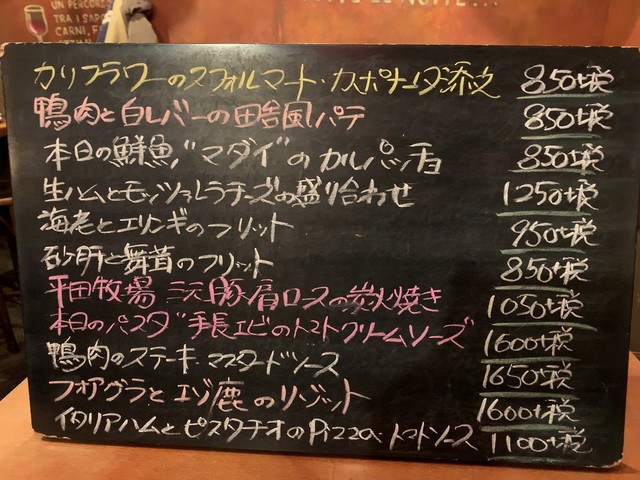 UN PERCORS
TRA I SAPO
CARNI, F
カリフラワーのスフォルマート・カポナータ添え 850+税
鴨肉と白レバーの田舎風パテ 850+税
本日の鮮魚"マダイ"のカルパッチョ 850+税
生ハムとモッツァレラチーズの盛り合わせ 1250+税
海老とエリンギのフリット 950+税
砂肝と舞茸のフリット 850+税
平田牧場 三元豚肩ロースの炭火焼き 1050+税
本日のパスタ"手長エビ"のトマトクリームソース 1600+税
鴨肉のステーキ マスタードソース 1650+税
フォアグラとエゾ鹿のリゾット 1600+税
イタリアハムとピスタチオのPizza・トマトソース 1100+税